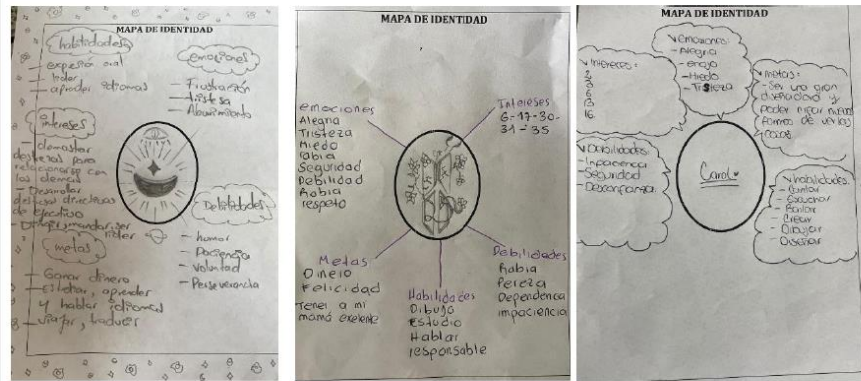 MAPA DE IDENTIDAD
habilidades
- expresión oral
- lider
- aprender idiomas
emociones
- Frustración
- tristesa
- Aburrimiento
intereses
- demostar
destrezas para
relacionarse con
los demas
- Desarrollar
destrezas directivas
de ejecutivo
- Dirigir, mandar, ser
lider
Debilidades
- humor
- Paciencia
- Voluntad
- Perseverancia
metas
- Ganar dinero
- Estudiar, aprender
y hablar idiomas
- viajar, traducir
MAPA DE IDENTIDAD
emociones
Alegria
Tristeza
Miedo
rabia
Seguridad
Debilidad
Rabia
respeto
Intereses
6-17-30-
31-35
Metas
Dinero
Felicidad
Tener a mi
mamá exelente
Habilidades
Dibujo
Estudio
Hablar
responsable
Debilidades
Rabia
Pereza
Dependencia
impaciencia
MAPA DE IDENTIDAD
emociones:
- Alegria
- enojo
- Miedo
- Tristeza
Intereses:
2
3
6
13
16
metas:
- Ser una gran
diseñadora y
poder
formas de ver las
cosas
Debilidades:
- Impaciencia
- Seguridad
- Desconfianza
Carol
habilidades:
- Cantar
- Escuchar
- Bailar
- Crear
- Dibujar
- Diseñar